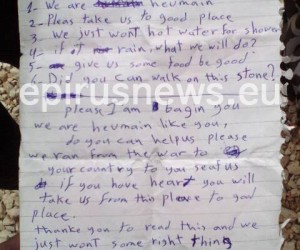 1- We are heumain
2- Pleas take us to good place
3- We just wont hot water for shower
4- if it rain, what we will do?
5- give us some food be good.
6- Did you can walk on this stone?
epirusnews.eu
please I am bagin you
we are heumain like you,
do you can helpus please
we ran from the war to
your country to you seaf us
if you have heart you will
take us from this place to good
place.
thanke you to read this and we
just wont some right thing